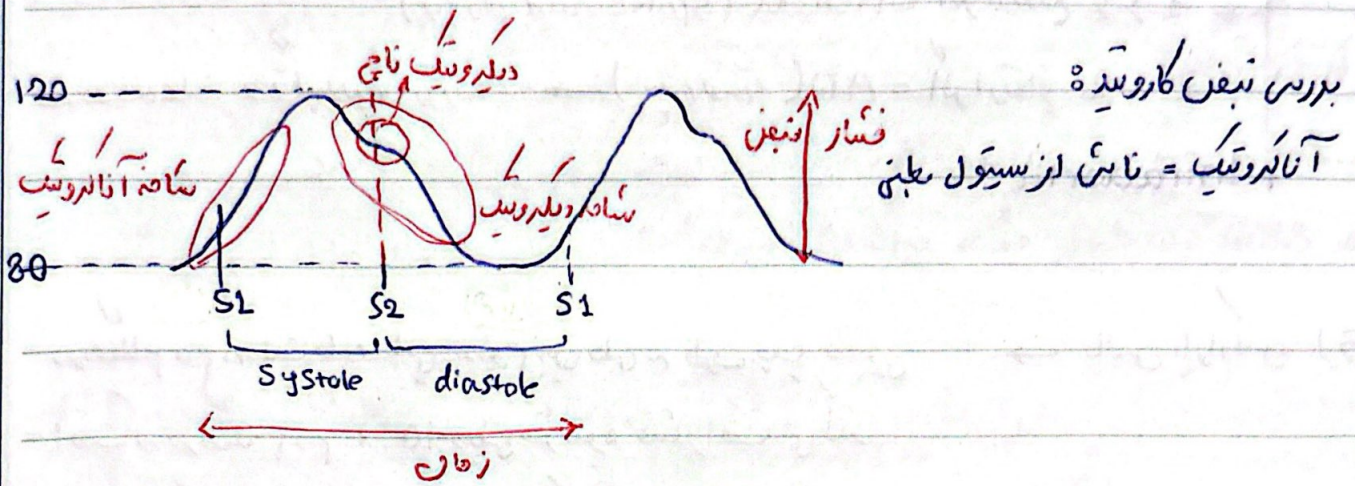 بررسی نبض کاروتید:
آناکروتیک = ناشی از سیستول بطنی
فشار نبض
دیکروتیک ناچ
شاخه آناکروتیک
شاخه دیکروتیک
120
80
S1 S2 S1
Systole diastole
زمان